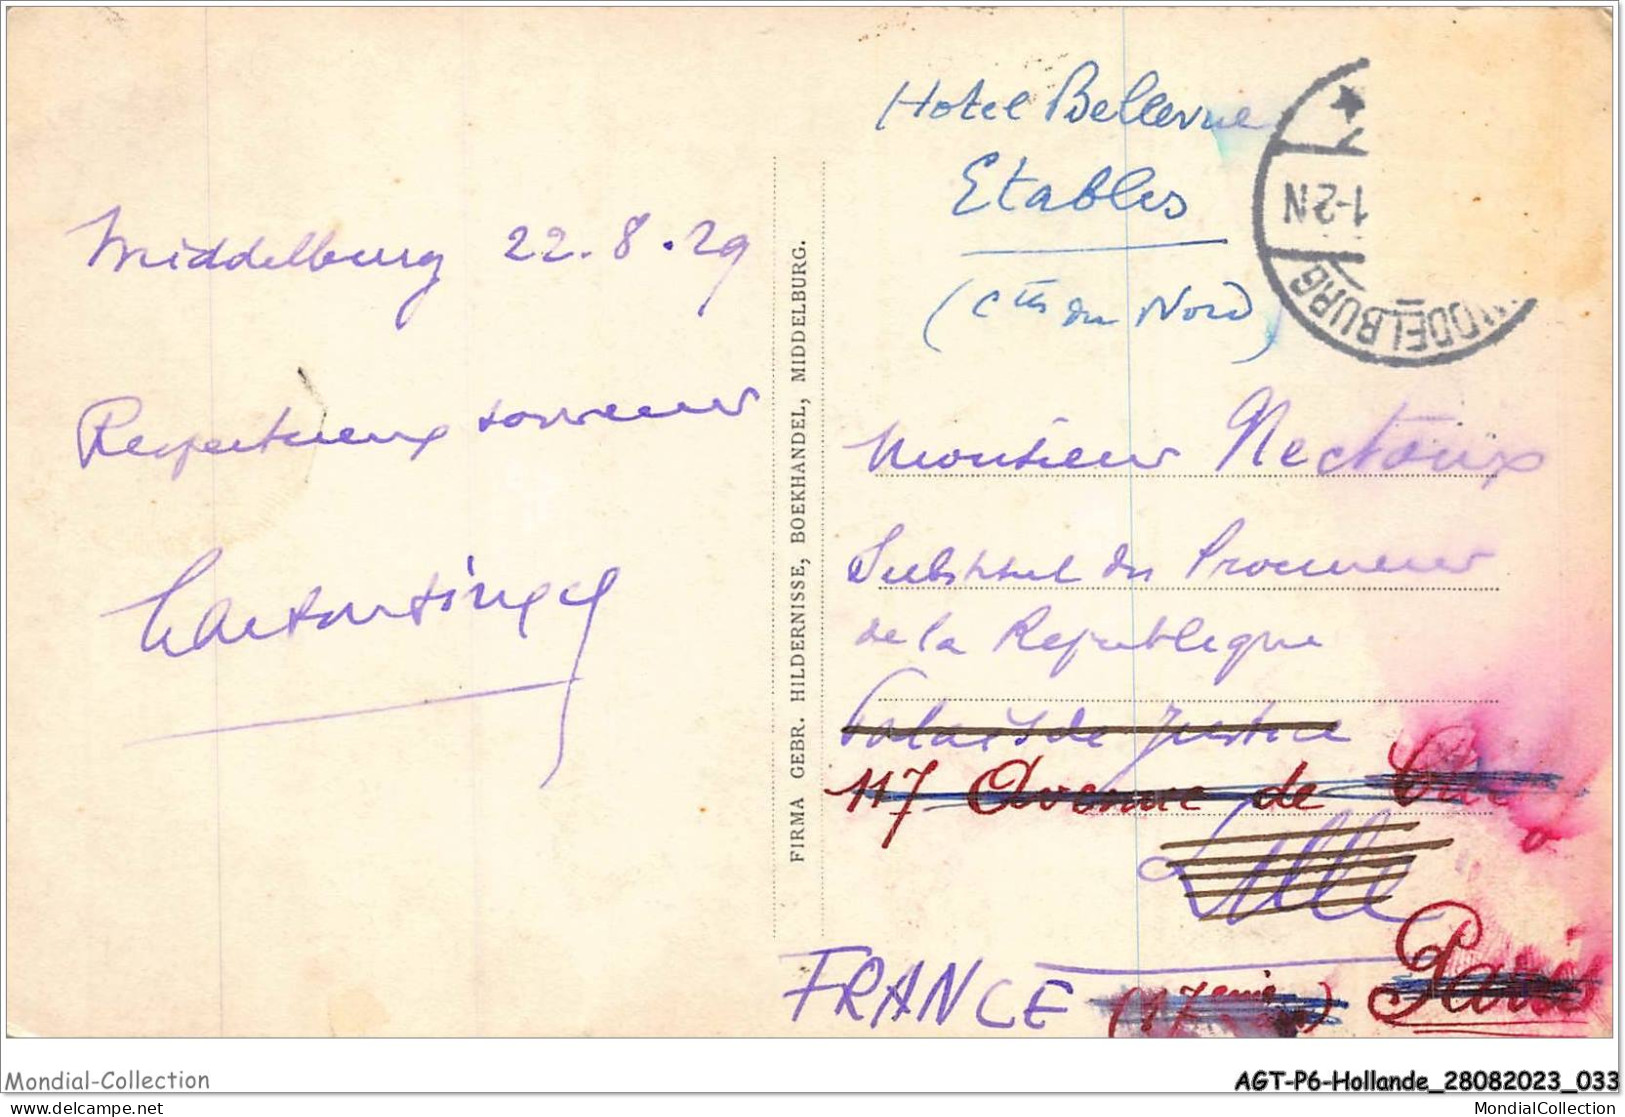 Middelburg 22.8.29
Respectueux souvenir
FIRMA GEBR. HILDERNISSE, BOEKHANDEL, MIDDELBURG.
Hotel Bellevue
Etables
(Ctes du Nord)
1-2 N
MIDDELBURG
Monsieur Nectoux
Substitut du Procureur
de la Republique
Palais de Justice
117 Avenue de
Lille
Paris
FRANCE (17eme)
Mondial-Collection
AGT-P6-Hollande_28082023_033
delcampe.net
MondialCollection